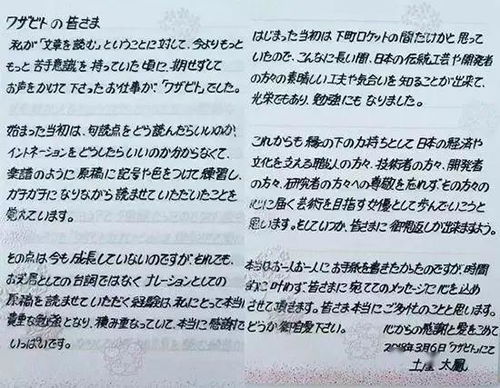 ワザビトの皆さま
私が「文章を読む」ということに対して、今よりもっと
もっと苦手意識を持っていた頃に、期せずして
お声をかけて下さったお仕事が、「ワザビト」でした。
始まった当初は、句読点をどう読んだらいいのか、
イントネーションをどうしたらいいのか分からなくて、
楽譜のように原稿に記号や色をつけて練習し、
ガラガラになりながら読ませていただいたことを
覚えています。
その点は今も成長していないのですが、それでも、
お芝居としての台詞ではなくナレーションとしての
原稿を読ませていただく経験は、私にとって本当に
貴重な勉強となり、積み重なっていて、本当に感謝で
いっぱいです。
はじまった当初は下町ロケットの間だけかと思って
いたので、こんなに長い間、日本の伝統工芸や開発者
の方々の素晴しい工夫や気合いを知ることが出来て、
光栄でもあり、勉強にもなりました。
これからも縁の下の力持ちとして日本の経済や
文化を支える職人の方々、技術者の方々、開発者
の方々、研究者の方々への尊敬を忘れず、その方々の
心に届く芸術を目指す女優として歩んでいこうと
思います。そしていつか、皆さまに御恩返しが出来ますよう。
本当はお一人お一人にお手紙を書きたかったのですが、時間
的に叶わず、皆さまに宛ててのメッセージに心を込め
させて頂きます。皆さま本当にご多忙のことと思います。
どうか御自愛下さい。
心からの感謝と愛をこめて
2018年3月6日「ワザビト」にて
土屋 太鳳